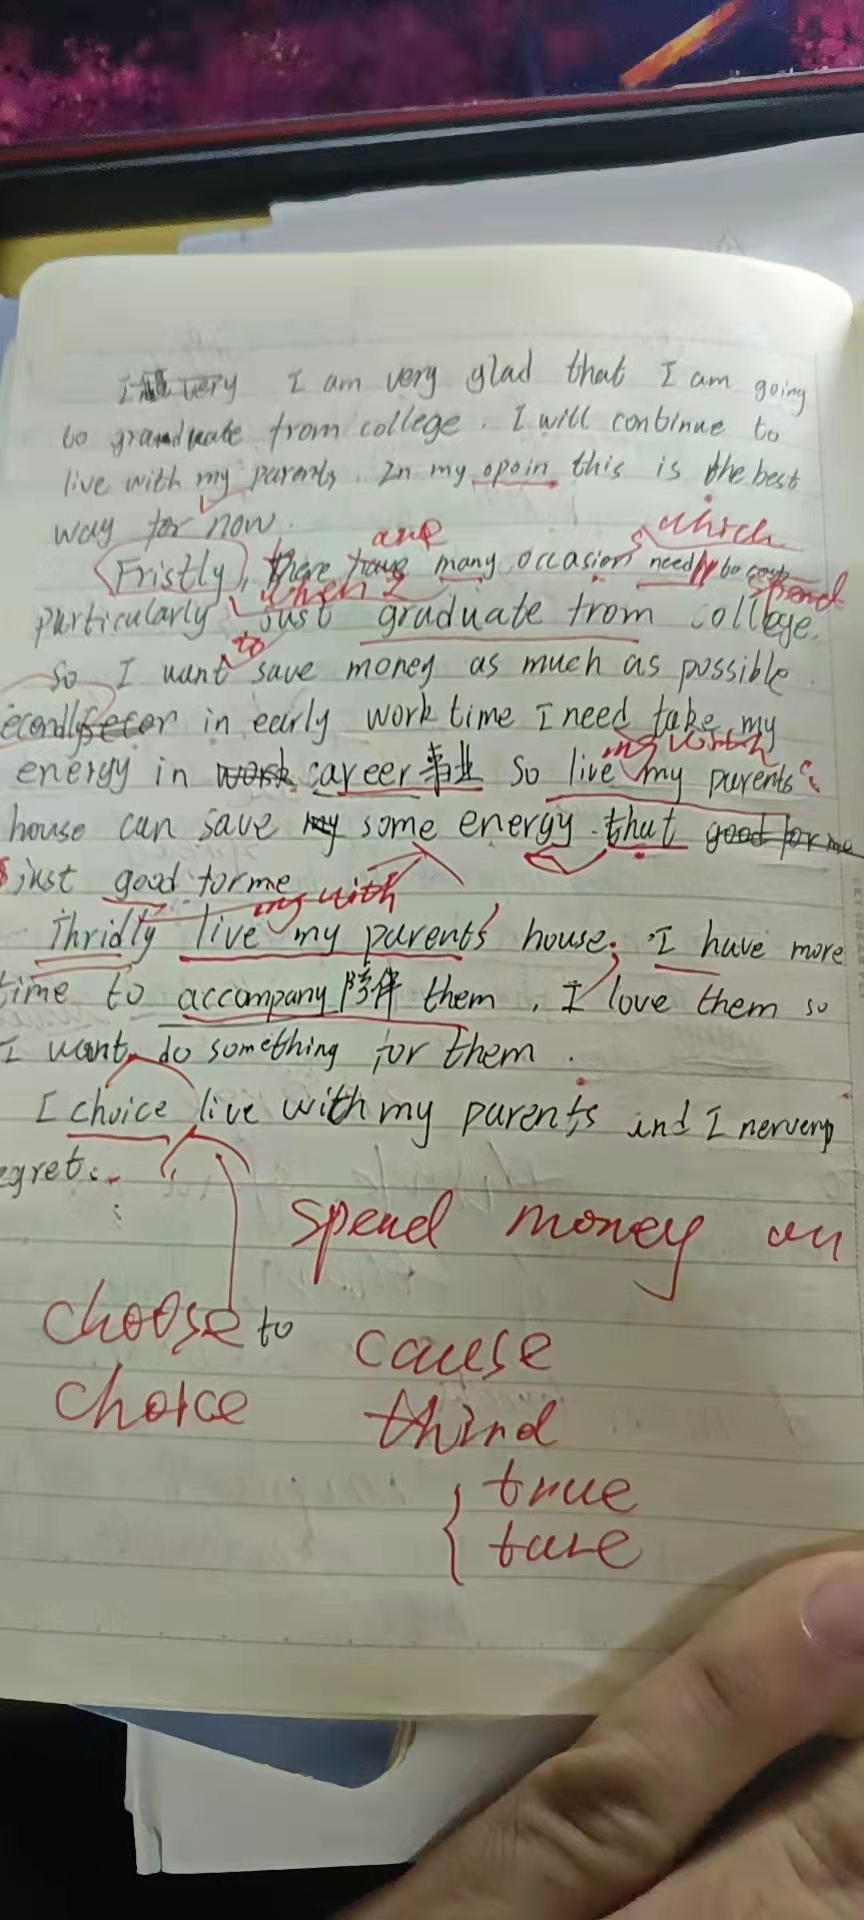 I very I am very glad that I am going
to graduate from college. I will continue to
live with my parents. In my opoin this is the best
way for now.
are which
Fristly, there have many occasion need to be cost
when I spend
particularly just graduate from college.
to
so I want save money as much as possible.
econdly in early work time I need take my
ing with
energy in work career事业 so live my parents'
house can save my some energy that good for me
just good for me
ing with
Thridly live my parents' house. I have more
time to accompany陪伴 them, I love them so
I want do something for them.
I choice live with my parents and I nerver
egret.
spend money on
choose to cause
choice third
true